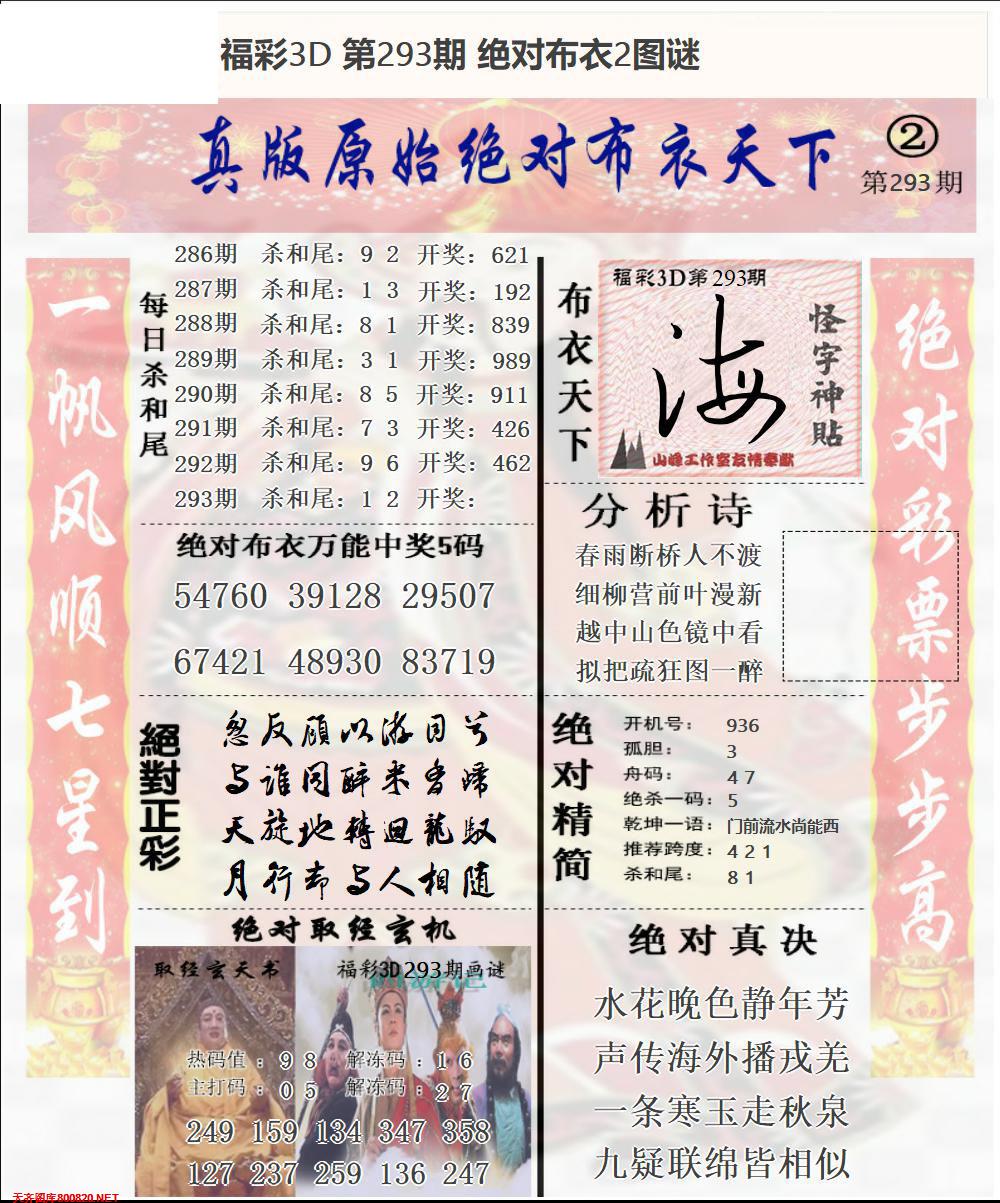 福彩3D 第293期 绝对布衣2图谜
真版原始绝对布衣天下
②
第293期
一帆风顺七星到
每日杀和尾
286期 杀和尾：9 2 开奖：621
287期 杀和尾：1 3 开奖：192
288期 杀和尾：8 1 开奖：839
289期 杀和尾：3 1 开奖：989
290期 杀和尾：8 5 开奖：911
291期 杀和尾：7 3 开奖：426
292期 杀和尾：9 6 开奖：462
293期 杀和尾：1 2 开奖：
绝对布衣万能中奖5码
54760 39128 29507
67421 48930 83719
絕對正彩
忽反顾以游目兮
与谁同醉采香归
天旋地轉迴龍馭
月行却与人相随
绝对取经玄机
取经玄天书
福彩3D293期画谜
热码值：9 8 解冻码：1 6
主打码：0 5 解冻码：2 7
249 159 134 347 358
127 237 259 136 247
天齐图库800820.NET
布衣天下
福彩3D第293期
海
怪字神貼
山峰工作室友情奉献
分析诗
春雨断桥人不渡
细柳营前叶漫新
越中山色镜中看
拟把疏狂图一醉
绝对精简
开机号：936
孤胆：3
舟码：4 7
绝杀一码：5
乾坤一语：门前流水尚能西
推荐跨度：4 2 1
杀和尾：8 1
绝对真决
水花晚色静年芳
声传海外播戎羌
一条寒玉走秋泉
九疑联绵皆相似
绝对彩票步步高